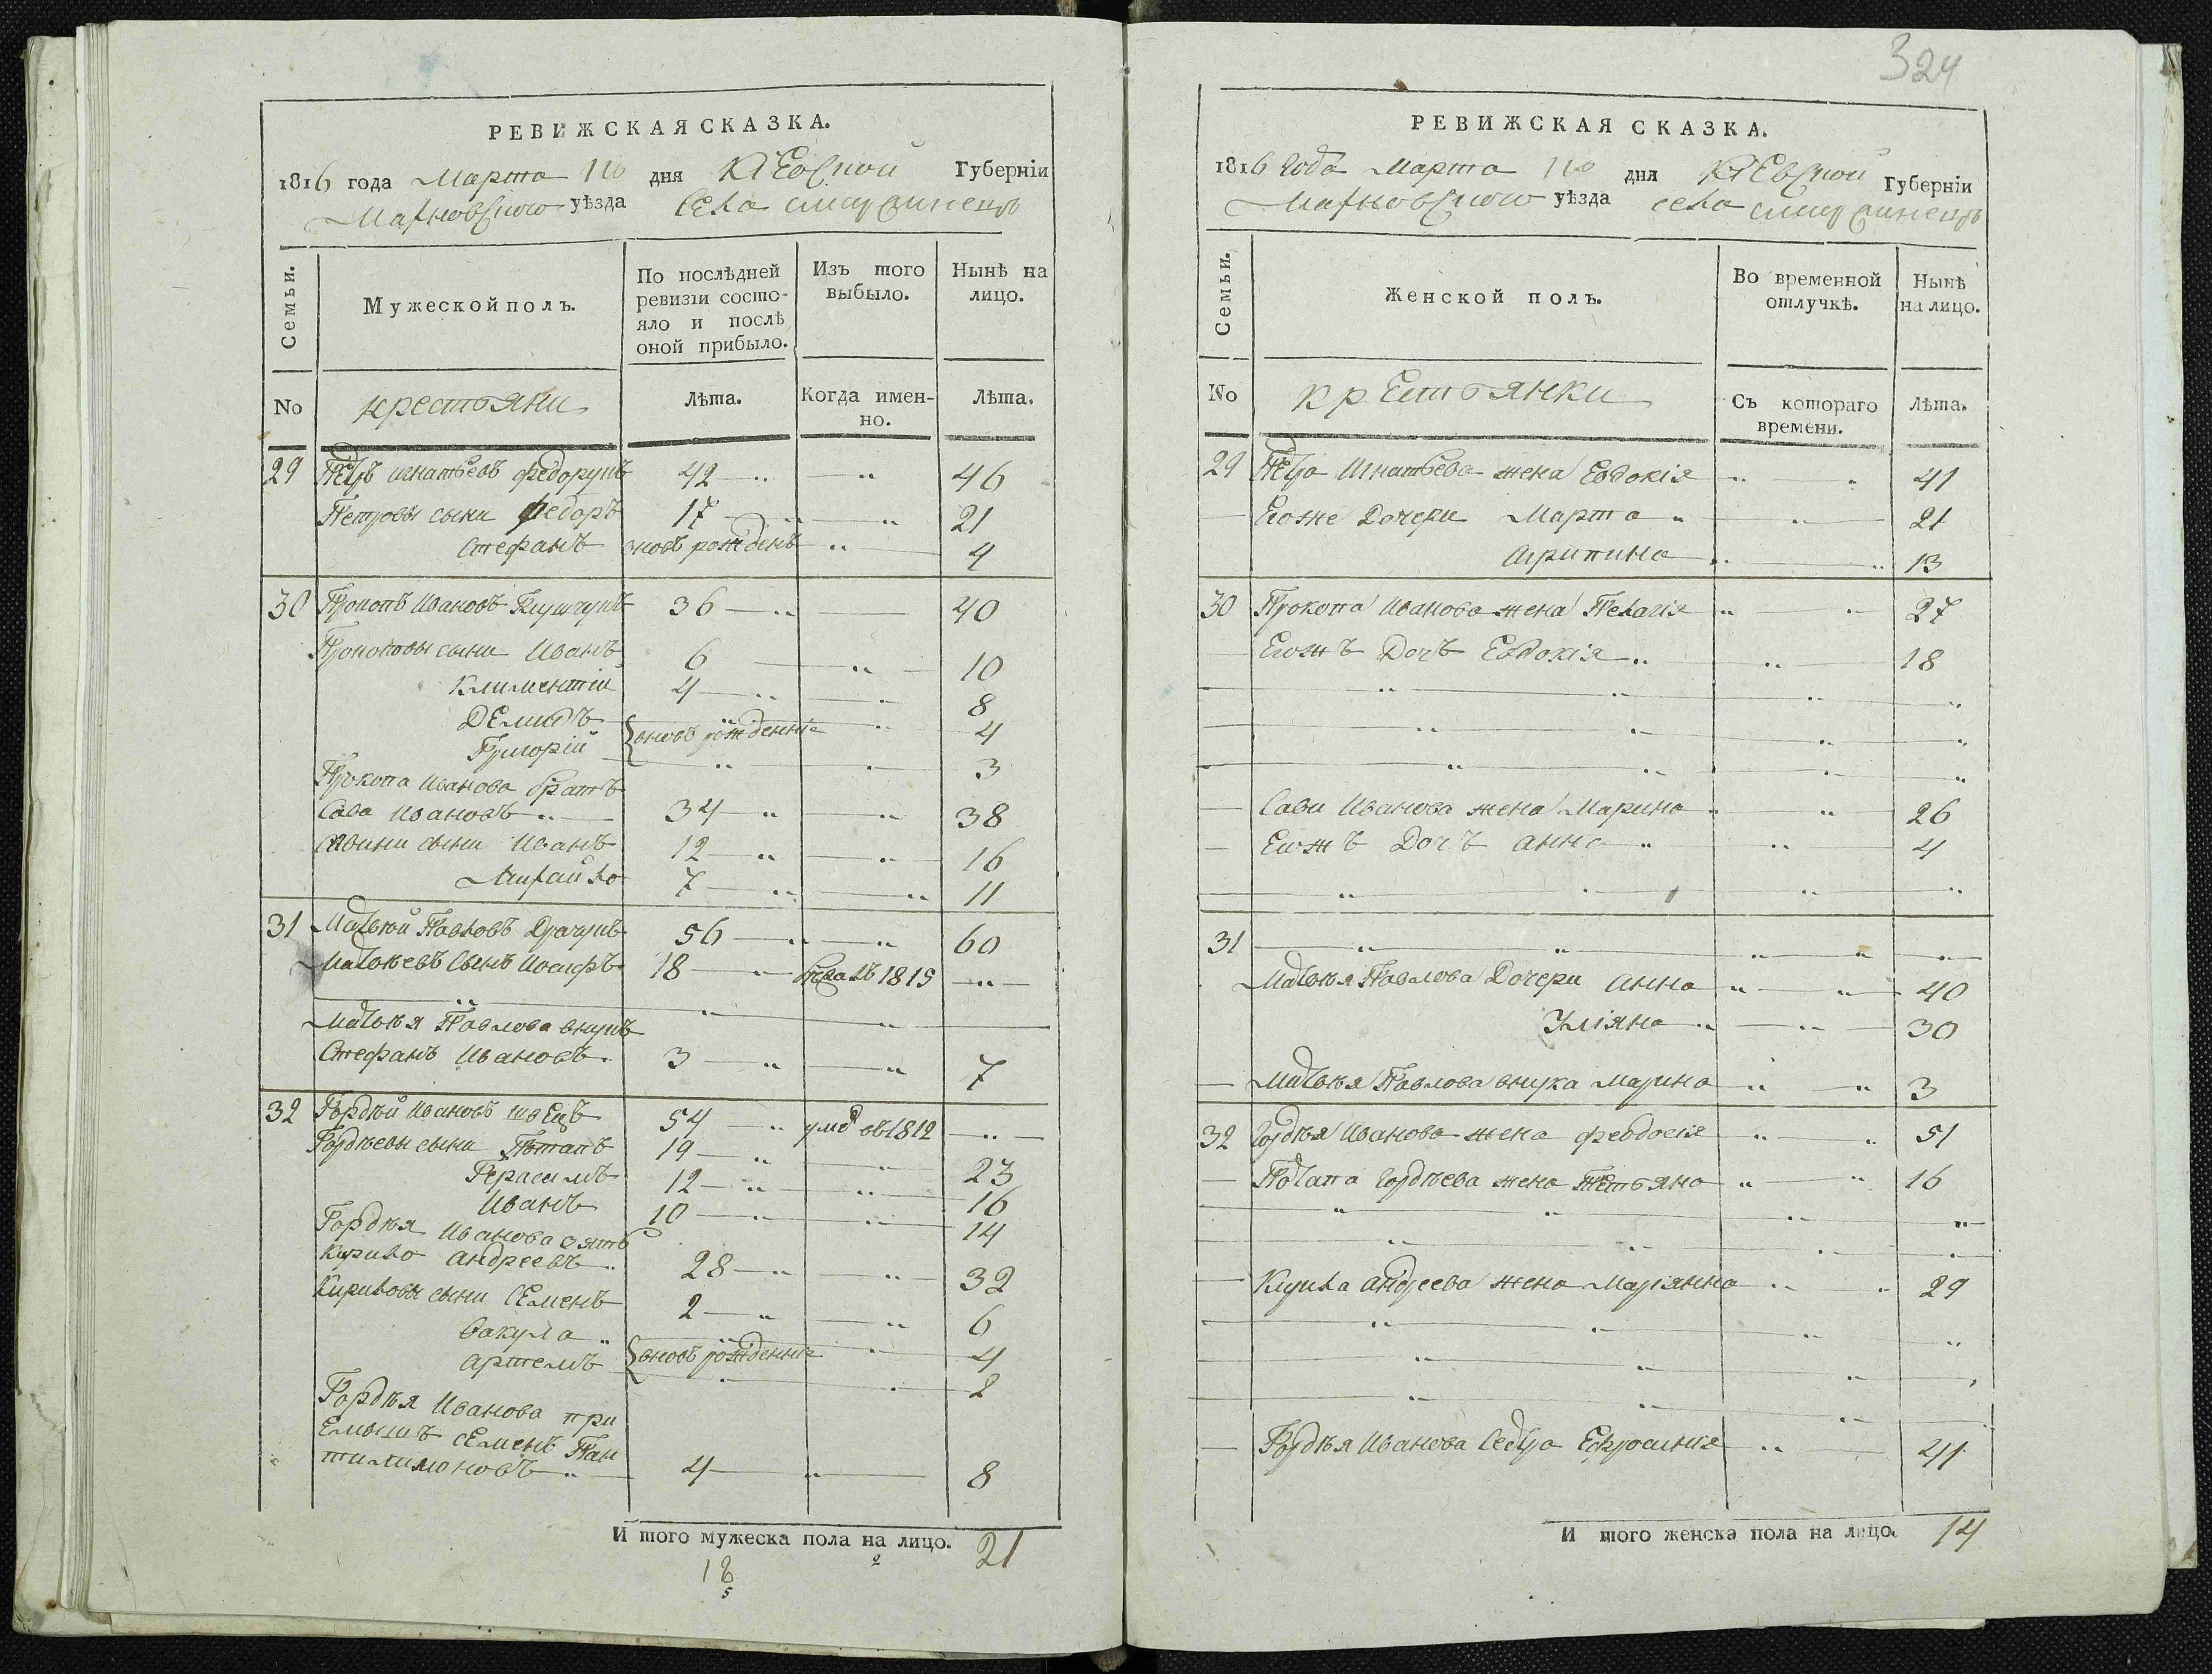 РЕВИЖСКАЯ СКАЗКА.
1816 года Марта дня Кіевской Губерніи
Махновского уѣзда села
Семьи.
Мужеской полъ.
По послѣдней ревизіи состояло и послѣ оной прибыло.
Изъ того выбыло.
Нынѣ на лицо.
No крестьяни Лѣта. Когда именно. Лѣта.
29 Петръ игнатьевъ федорукъ 42 46
Петровы сыни Федоръ 17 21
Стефанъ вновъ рожденъ 4
30 Прокопъ Ивановъ 36 40
Прокоповы сыни Иванъ 6 10
Климентій 4 8
Демидъ 4
вновъ рожденніе
Григорій 3
Прокопа Иванова братъ
Сава Ивановъ 34 38
Савини сыни Иванъ 12 16
Михайло 7 11
31 Матвѣй Павловъ Драчукъ 56 60
Матвѣевъ сынъ Иосифъ 18 1815
Матвѣя Павлова внукъ
Стефанъ Ивановъ 3 7
32 Гордѣй Ивановъ швецъ 54 умре въ 1812
Гордѣевы сыни Потапъ 19 23
Герасимъ 12 16
Иванъ 10 14
Гордѣя Иванова зять
Кирило андреевъ 28 32
Кириловы сыни Семенъ 2 6
Вакула 4
вновъ рожденніе
артемъ 2
Гордѣя Иванова при
Емышъ Семенъ Пан
тилимоновъ 4 8
И того мужеска пола на лицо. 21
18 2
5
324
РЕВИЖСКАЯ СКАЗКА.
1816 года Марта дня Кіевской Губерніи
Махновского уѣзда села
Семьи.
Женской полъ.
Во временной отлучкѣ.
Нынѣ на лицо.
No крестьянки Съ котораго времени. Лѣта.
29 Петра Игнатьева жена Евдокія 41
Егоже Дочери Марта 21
Агрипина 13
30 Прокопа Иванова жена Пелагія 27
Егожъ Дочъ Евдокія 18
Сави Иванова жена Марина 26
Егожъ Дочъ анна 4
31
Матвѣя Павлова Дочери анна 40
Уліяна 30
Матвѣя Павлова внука Марина 3
32 Гордѣя Иванова жена феодосія 51
Потапа Гордѣева жена Тетьяна 16
Кирила андреева жена Маріянна 29
Гордѣя Иванова Сестра Ефросинія 41
И того женска пола на лицо. 14